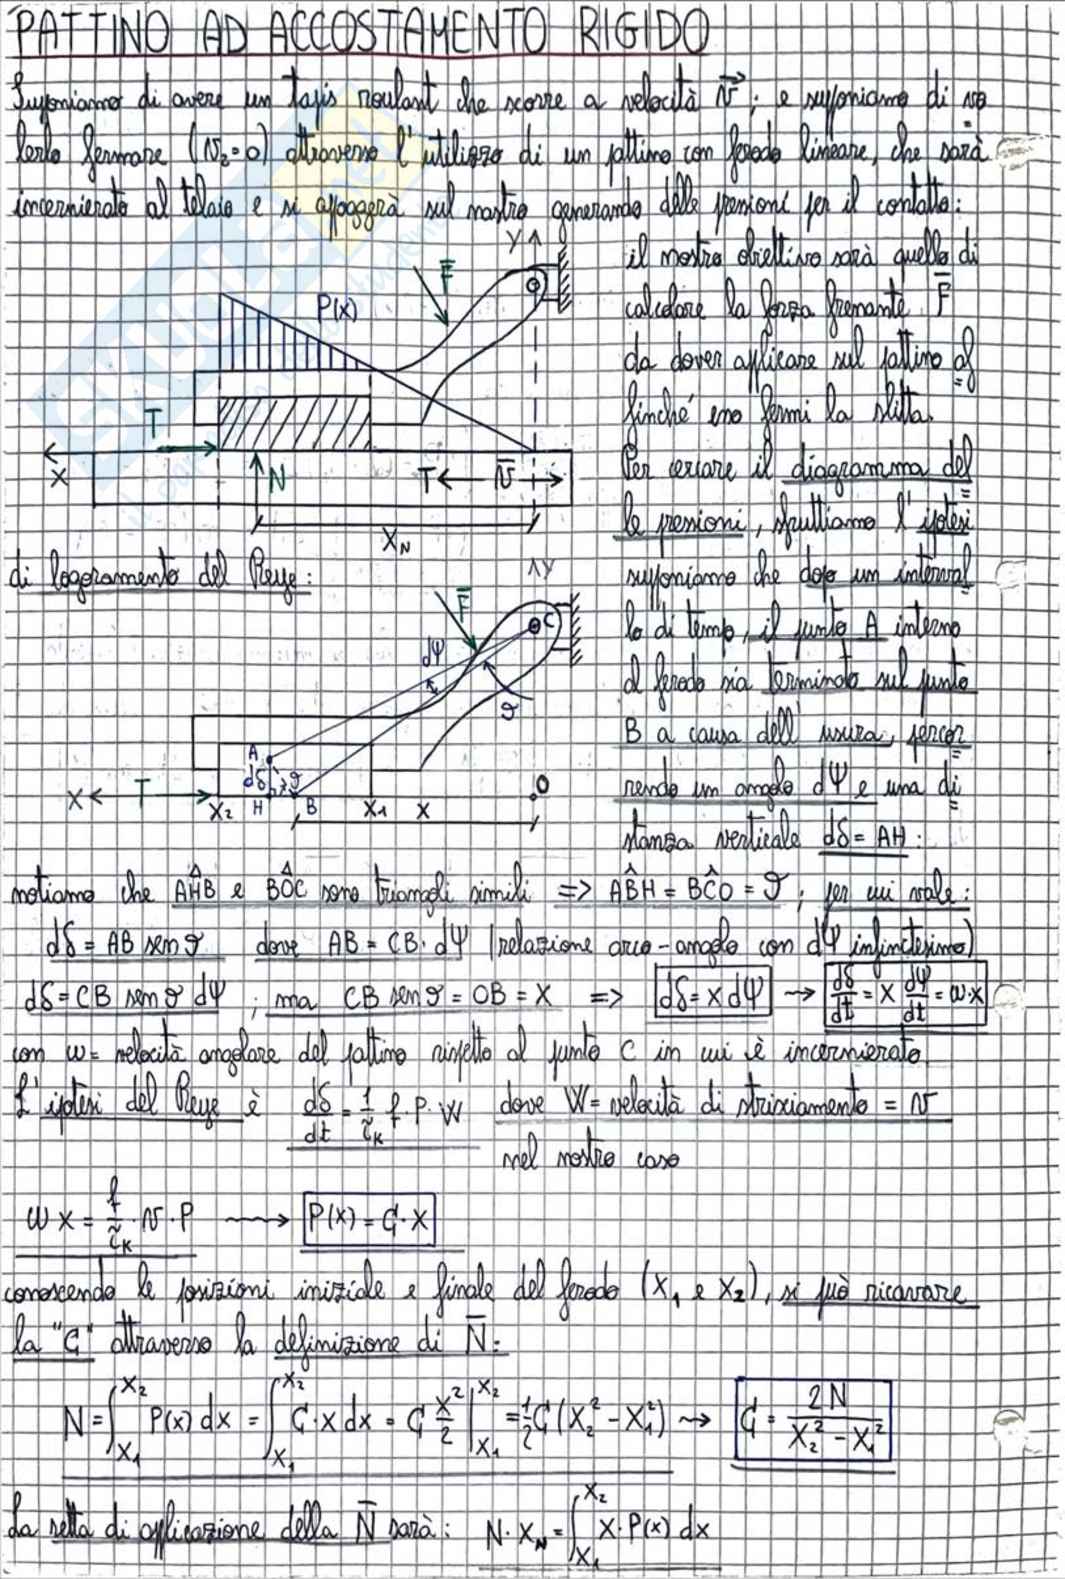 PATTINO AD ACCOSTAMENTO RIGIDO
Supponiamo di avere un tapis roulant che scorre a velocità v; e supponiamo di vo
lerlo fermare (v₂=0) attraverso l'utilizzo di un pattino con ferodo lineare, che sarà
incernierato al telaio e si appoggerà sul nastro generando delle pressioni per il contatto:
il nostro obiettivo sarà quello di
calcolare la forza frenante F
da dover applicare sul pattino af
finché esso fermi la slitta.
Per cercare il diagramma del
le pressioni, sfruttiamo l'ipotesi
di logoramento del Reye:
supponiamo che dopo un interval
lo di tempo, il punto A interno
al ferodo sia terminato sul punto
B a causa dell'usura, percor
rendo un angolo dψ e una di
stanza verticale dδ = AH:
Y
F
P(x)
T
X
N
T
v
X_N
Y
F
C
dψ
ϑ
A
dδ
ϑ
X
T
X₂
H
B
X₁
X
O
notiamo che AĤB e BÔC sono triangoli simili => AB̂H = BĈO = ϑ, per cui vale:
dδ = AB sen ϑ dove AB = CB · dψ (relazione arco-angolo con dψ infinitesimo)
dδ = CB sen ϑ dψ ; ma CB sen ϑ = OB = X => dδ = x dψ → dδ/dt = x dψ/dt = ω·x
con ω = velocità angolare del pattino rispetto al punto C in cui è incernierato.
L'ipotesi del Reye è dδ/dt = 1/τ̃_K f · P · W dove W = velocità di strisciamento = v
nel nostro caso
ωx = f/τ̃_K · v · P → P(x) = G · X
conoscendo le posizioni iniziale e finale del ferodo (X₁ e X₂), si può ricavare
la "G" attraverso la definizione di N:
N = ∫_{X₁}^{X₂} P(x) dx = ∫_{X₁}^{X₂} G · x dx = G x²/2 |_{X₁}^{X₂} = 1/2 G (X₂² - X₁²) → G = 2N / (X₂² - X₁²)
La retta di applicazione della N sarà: N · X_N = ∫_{X₁}^{X₂} X · P(x) dx